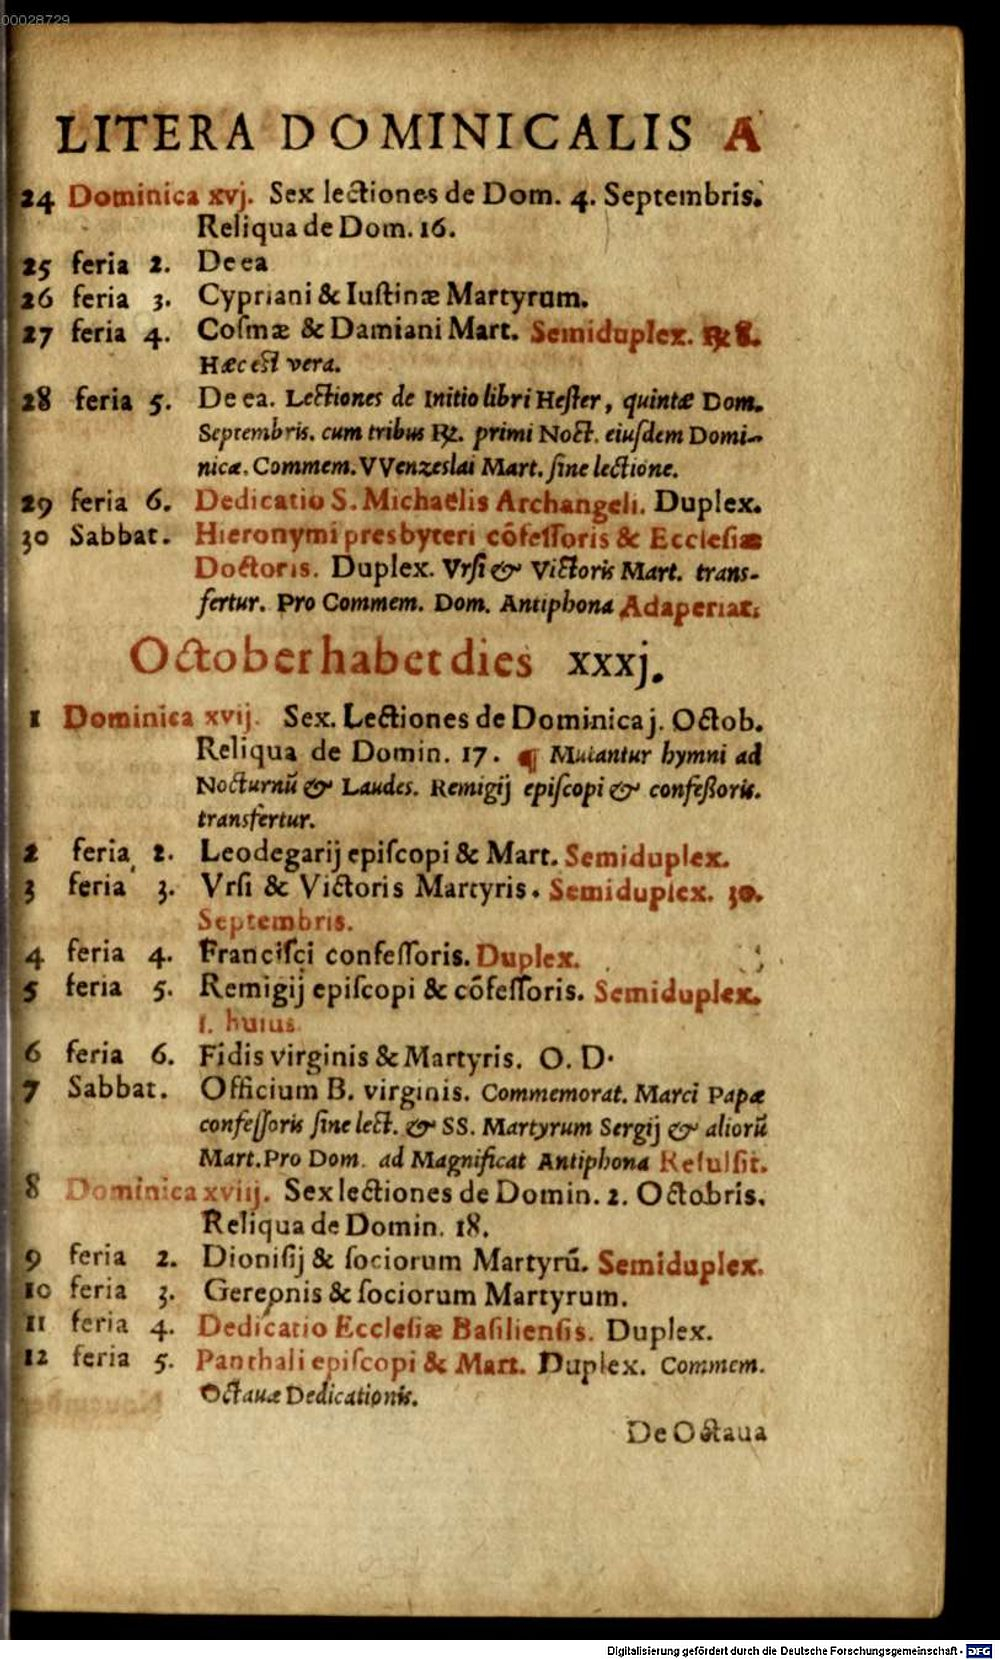 00028729
LITERA DOMINICALIS A
24 Dominica xvj. Sex lectiones de Dom. 4. Septembris.
Reliqua de Dom. 16.
25 feria 2. De ea
26 feria 3. Cypriani & Iustinæ Martyrum.
27 feria 4. Cosmæ & Damiani Mart. Semiduplex. ℞ 8.
Hæc est vera.
28 feria 5. De ea. Lectiones de Initio libri Hester, quintæ Dom.
Septembris. cum tribus ℞. primi Noct. eiusdem Domi-
nicæ. Commem. VVenzeslai Mart. sine lectione.
29 feria 6. Dedicatio S. Michaëlis Archangeli. Duplex.
30 Sabbat. Hieronymi presbyteri cõfessoris & Ecclesiæ
Doctoris. Duplex. Vrsi & Victoris Mart. trans-
fertur. Pro Commem. Dom. Antiphona Adaperiat.
October habet dies xxxj.
1 Dominica xvij. Sex. Lectiones de Dominica j. Octob.
Reliqua de Domin. 17. ¶ Mutantur hymni ad
Nocturnũ & Laudes. Remigij episcopi & confeßoris.
transfertur.
2 feria 2. Leodegarij episcopi & Mart. Semiduplex.
3 feria 3. Vrsi & Victoris Martyris. Semiduplex. 30.
Septembris.
4 feria 4. Francisci confessoris. Duplex.
5 feria 5. Remigij episcopi & cõfessoris. Semiduplex.
1. huius
6 feria 6. Fidis virginis & Martyris. O. D.
7 Sabbat. Officium B. virginis. Commemorat. Marci Papæ
confessoris sine lect. & SS. Martyrum Sergij & aliorũ
Mart. Pro Dom. ad Magnificat Antiphona Refulsit.
8 Dominica xviij. Sex lectiones de Domin. 2. Octobris.
Reliqua de Domin. 18.
9 feria 2. Dionisij & sociorum Martyrũ. Semiduplex.
10 feria 3. Gereonis & sociorum Martyrum.
11 feria 4. Dedicatio Ecclesiæ Basiliensis. Duplex.
12 feria 5. Panthali episcopi & Mart. Duplex. Commem.
Octauæ Dedicationis.
De Octaua
Digitalisierung gefördert durch die Deutsche Forschungsgemeinschaft - DFG